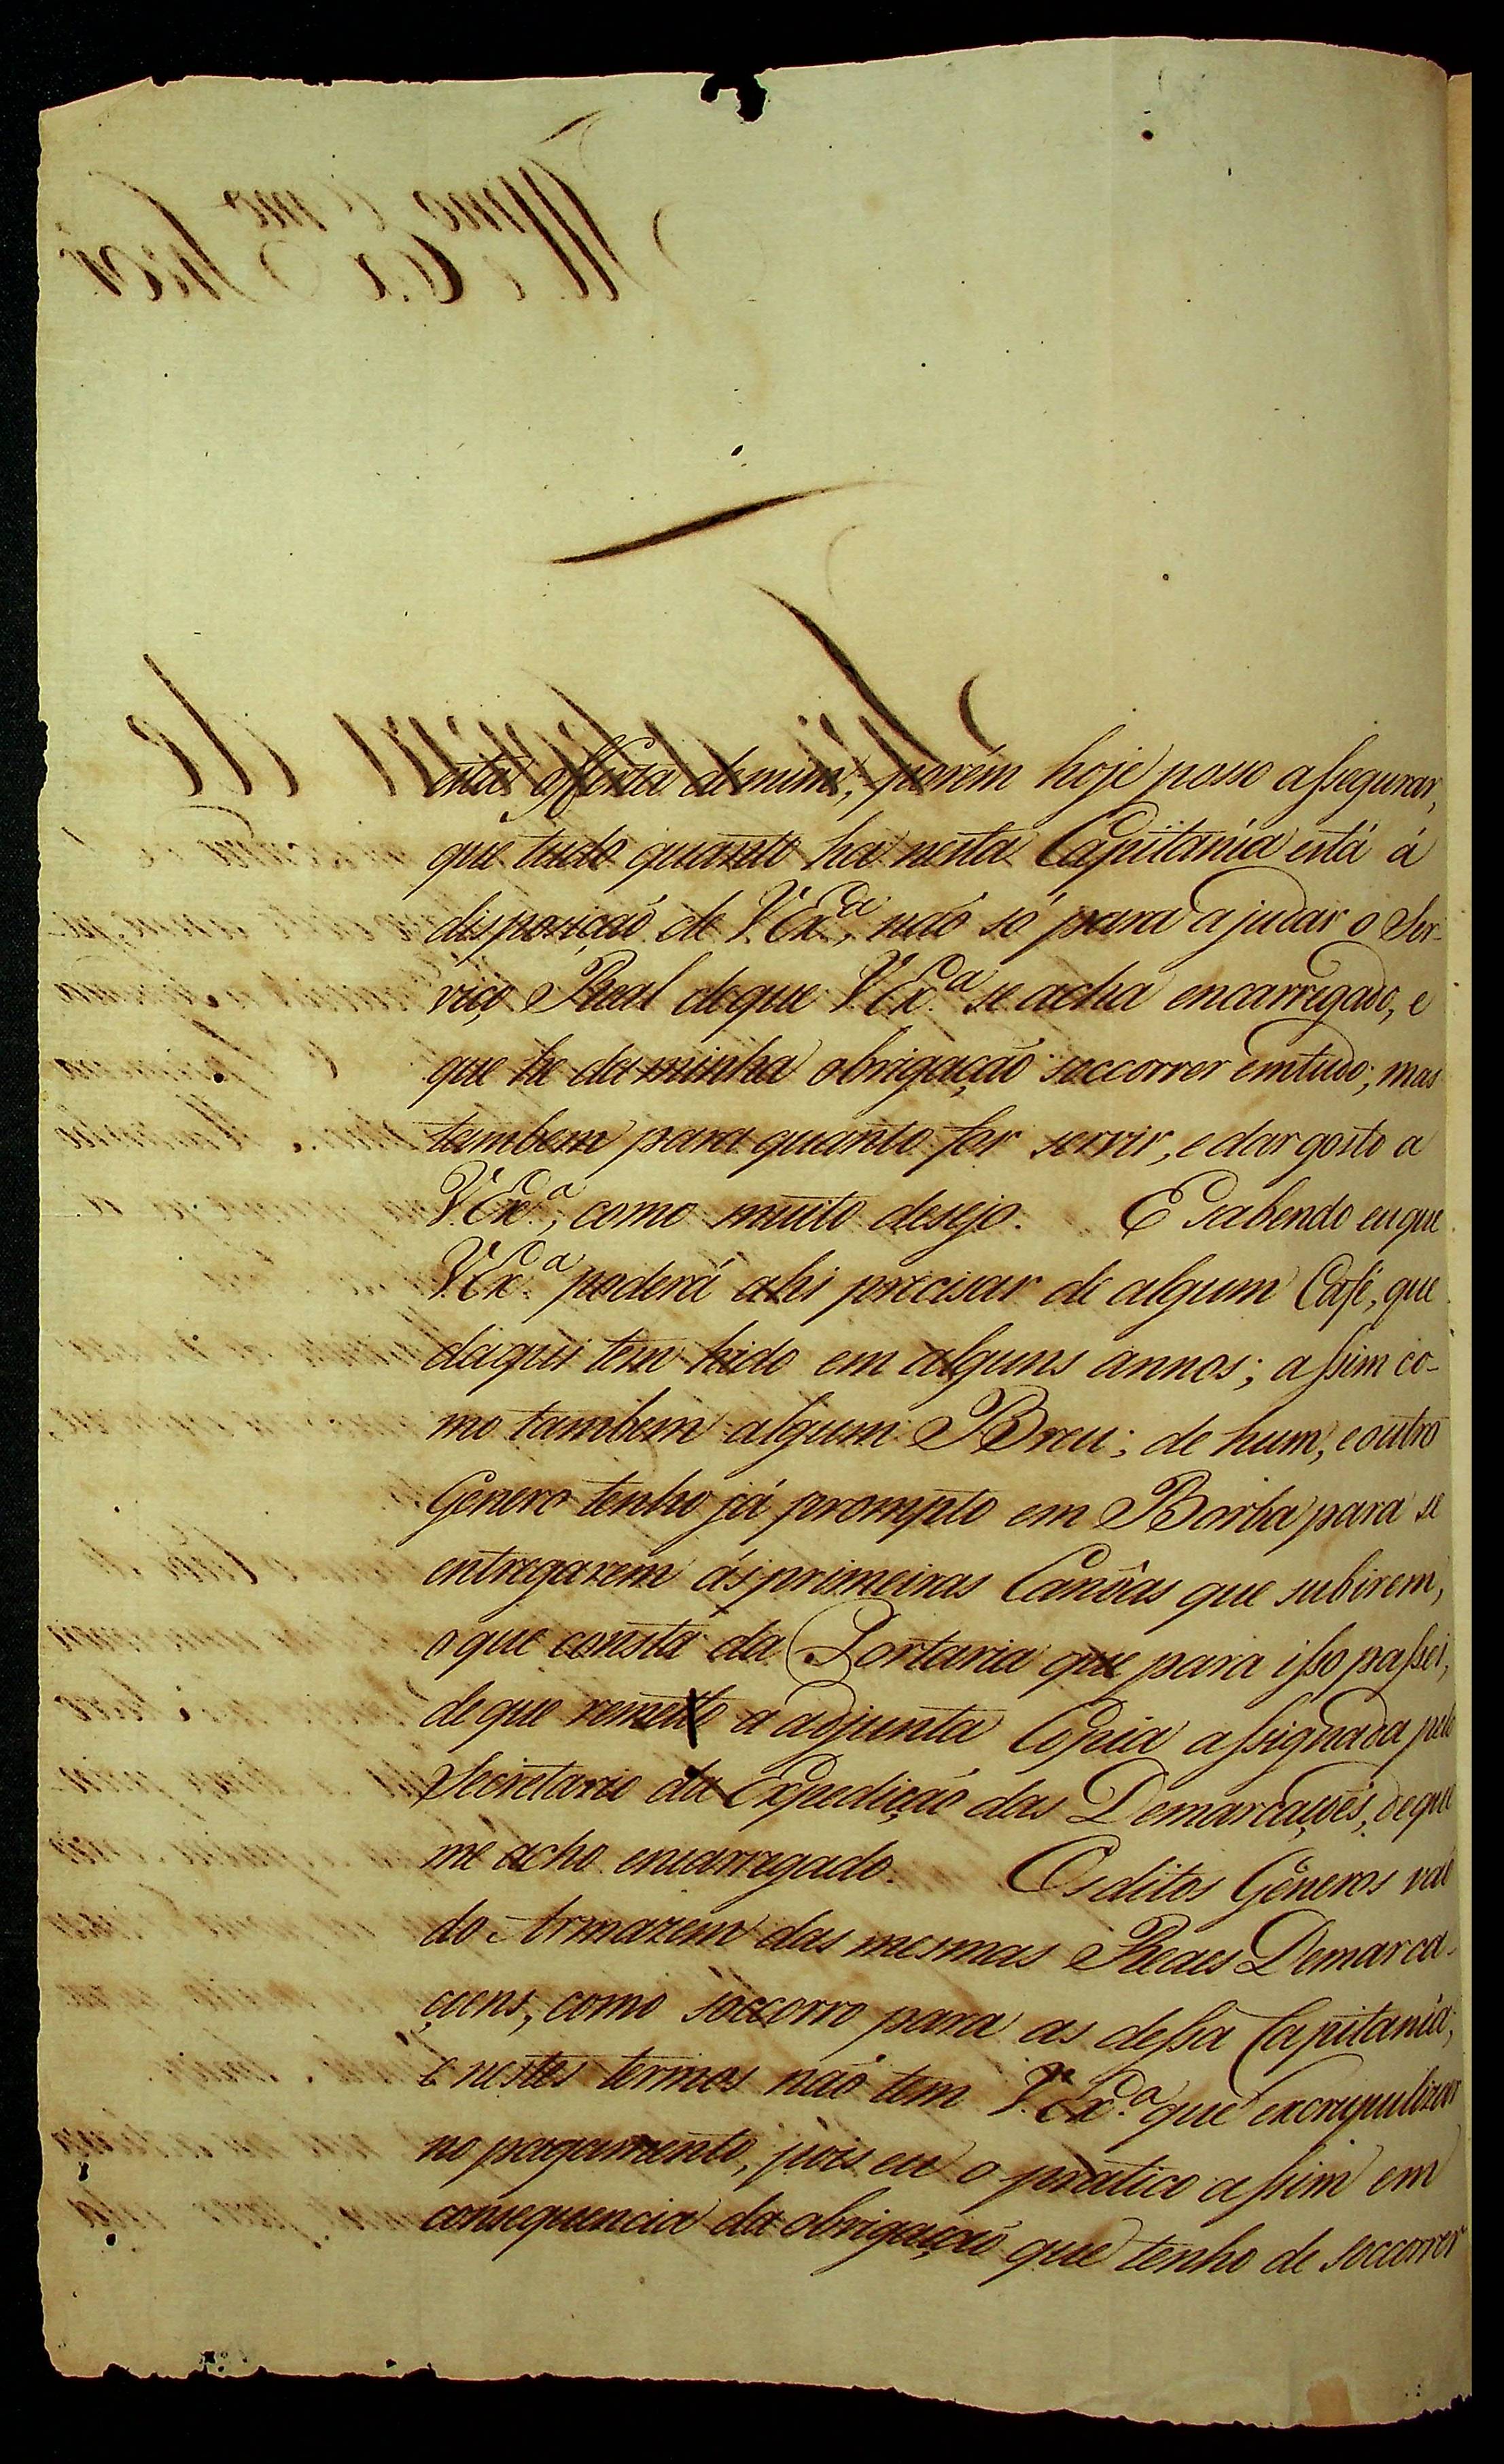 esta offerta de mim; porém hoje posso assegurar,
que tudo quanto ha nesta Capitania está á
disposição de V.Ex.ª, não só para ajudar o Ser-
viço Real de que V.Ex.ª se acha encarregado, e
que he da minha obrigação soccorrer em tudo; mas
tambem para quanto for servir, e dar gosto a
V.Ex.ª, como muito desejo. E sabendo eu que
V.Ex.ª poderá ahi precisar de algum Café, que
daqui tem hido em alguns annos; assim co-
mo tambem algum Breu; de hum, e outro
Genero tenho já prompto em Borba para se
entregarem ás primeiras Canôas que subirem,
o que consta da Portaria que para isso passei,
de que remetto a adjunta Copia assignada pelo
Secretario da Expedição das Demarcações, de que
me acho encarregado. Os ditos Gêneros vaõ
do Armazem das mesmas Reaes Demarca-
çoens, como soccorro para as dessa Capitania;
e nestes termos não tem V.Ex.ª que excrupulizar
no pagamento, pois eu o pratico assim em
consequencia da obrigação que tenho de soccorrer